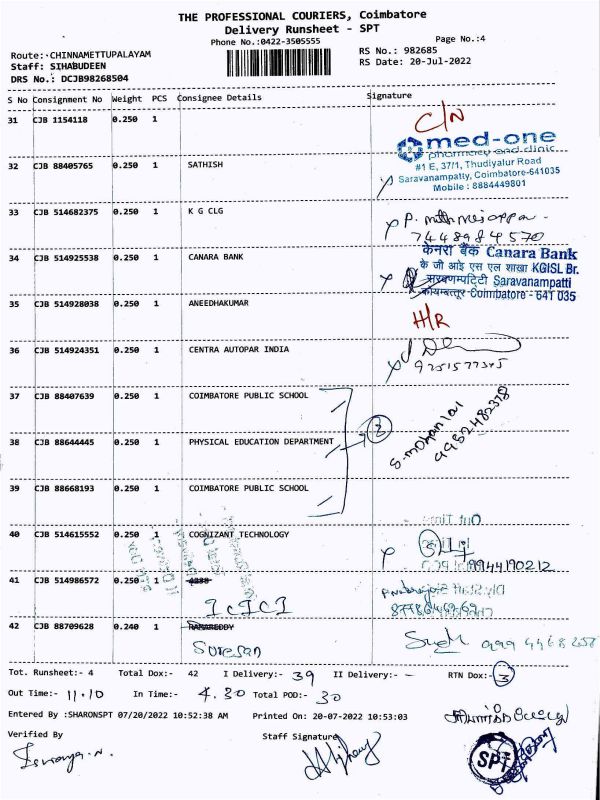 THE PROFESSIONAL COURIERS, Coimbatore
Delivery Runsheet - SPT
Phone No.:0422-3505555
Page No.:4
Route: CHINNAMETTUPALAYAM
RS No.: 982685
Staff: SIHABUDEEN
RS Date: 20-Jul-2022
DRS No.: DCJB98268504
S No Consignment No Weight PCS Consignee Details Signature
31 CJB 1154118 0.250 1 C/N
med-one
pharmacy and clinic
#1 E, 37/1, Thudiyalur Road
Saravanampatty, Coimbatore-641035
Mobile : 8884449801
32 CJB 88405765 0.250 1 SATHISH
33 CJB 514682375 0.250 1 K G CLG
7448984570
34 CJB 514925538 0.250 1 CANARA BANK
केनरा बैंक Canara Bank
के जी आई एस एल शाखा KGISL Br.
सरवणमपट्टि Saravanampatti
कोयम्बत्तूर Coimbatore - 641 035
35 CJB 514928038 0.250 1 ANEEDHAKUMAR H/R
36 CJB 514924351 0.250 1 CENTRA AUTOPAR INDIA
9751577345
37 CJB 88407639 0.250 1 COIMBATORE PUBLIC SCHOOL
38 CJB 88644445 0.250 1 PHYSICAL EDUCATION DEPARTMENT 3
S. mohanlal
9952482378
39 CJB 88668193 0.250 1 COIMBATORE PUBLIC SCHOOL
40 CJB 514615552 0.250 1 COGNIZANT TECHNOLOGY
9944190212
41 CJB 514986572 0.250 1
ICICI
42 CJB 88709628 0.240 1 RAMAREDDY
Suresan
Tot. Runsheet:- 4 Total Dox:- 42 I Delivery:- 39 II Delivery:- - RTN Dox:- 3
Out Time:- 11.10 In Time:- 4.30 Total POD:- 30
Entered By :SHARONSPT 07/20/2022 10:52:38 AM Printed On: 20-07-2022 10:53:03
Verified By Staff Signature
SPT